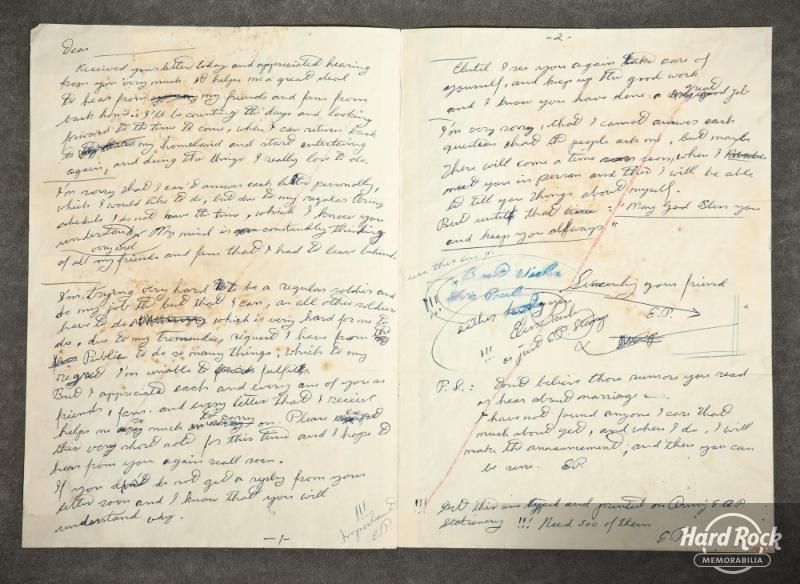 Dear
Received your letter today and appreciated hearing
from you very much. It helps me a great deal
to hear from my friends and fans from
back home. I'll be counting the days and looking
forward to the time to come, when I can return back
to my homeland and start entertaining
again, and doing the things I really love to do.
I'm sorry that I can't answer each letter personally,
which I would like to do, but due to my regular Army
schedule I do not have the time, which I know you
understand. My mind is constantly thinking
very well
of all my friends and fans that I had to leave behind.
I'm trying very hard to be a regular soldier and
do my job the best that I can, as all other soldiers
have to do which is very hard for me to
do, due to my tremendous request I have from the
Public to do so many things, which to my
regret I'm unable to fulfill.
But I appreciate each and every one of you as
friends, fans, and every letter that I receive
helps me so much to carry on. Please
this very short note for this time and I hope to
hear from you again reall soon.
If you don't be not get a reply from your
letter soon and I know that you will
understand why.
!!!
Important
E.P.
-1-
-2-
Until I see you again take care of
yourself, and keep up the good work
and I know you have done a great job
I'm very sorry, that I cannot answer each
question that the people asks me, but maybe
there will come a time soon, when I
meet you in person and then I will be able
to tell you things about myself.
But until that time: "May God Bless you
and keep you allways"
use this one !!!
"Best Wishes
Elvis Presley
Sincerly your friend
E.P.
!!!
either
Elvis
!!!
or just E.P. Stamp
P.S.: Don't believe those rumors you read
or hear about marriage.
I have not found anyone I care that
much about yet, and when I do, I will
make the announcement, and then you can
be sure. E.P.
!!! Get this one typed and printed on Army E.A.P.
Stationery !!! Need 500 of them
E.P.
Hard Rock
MEMORABILIA